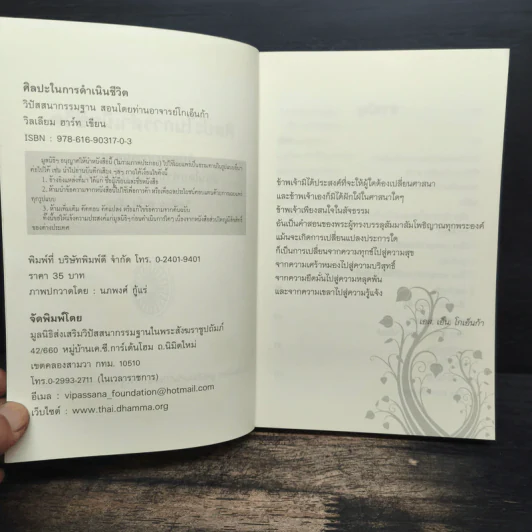 ศิลปะในการดำเนินชีวิต
วิปัสสนากรรมฐาน สอนโดยท่านอาจารย์โกเอ็นก้า
วิลเลียม ฮาร์ท เขียน
ISBN : 978-616-90317-0-3
พิมพ์ที่ บริษัทพิมพ์ดี จำกัด โทร. 0-2401-9401
ราคา 35 บาท
ภาพปกวาดโดย : นภพงศ์ กู้แร่
จัดพิมพ์โดย
มูลนิธิส่งเสริมวิปัสสนากรรมฐานในพระสังฆราชูปถัมภ์
42/660 หมู่บ้านเค.ซี.การ์เด้นโฮม ถ.นิมิตใหม่
เขตคลองสามวา กทม. 10510
โทร.0-2993-2711 (ในเวลาราชการ)
อีเมล : vipassana_foundation@hotmail.com
เว็บไซต์ : www.thai.dhamma.org
ข้าพเจ้ามิได้ประสงค์ที่จะให้ผู้ใดต้องเปลี่ยนศาสนา
และข้าพเจ้าเองก็มิได้ฝักใฝ่ในศาสนาใดๆ
ข้าพเจ้าเพียงสนใจในสัจธรรม
อันเป็นคำสอนของพระผู้ทรงบรรลุสัมมาสัมโพธิญาณทุกพระองค์
แม้นจะเกิดการเปลี่ยนแปลงประการใด
ก็เป็นการเปลี่ยนจากความทุกข์ไปสู่ความสุข
จากความเศร้าหมองไปสู่ความบริสุทธิ์
จากความยึดมั่นไปสู่ความหลุดพ้น
และจากความเขลาไปสู่ความรู้แจ้ง
เอส. เอ็น. โกเอ็นก้า